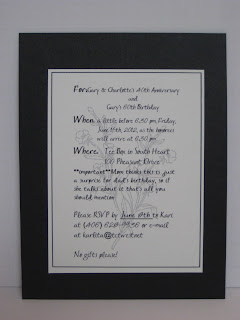 For: Gary & Charlotte's 40th Anniversary
and
Gary's 60th Birthday
When: a little before 6:30 pm, Friday,
June 15th, 2012, as the honorees
will arrive at 6:30 pm
Where: Tee Box in South Heart
100 Pheasant Drive
**important**Mom thinks this is just
a surprise for dad's birthday, so if
she talks about it that's all you
should mention
Please RSVP by June 10th to Kari
at (406)
or e-mail
at
No gifts please!